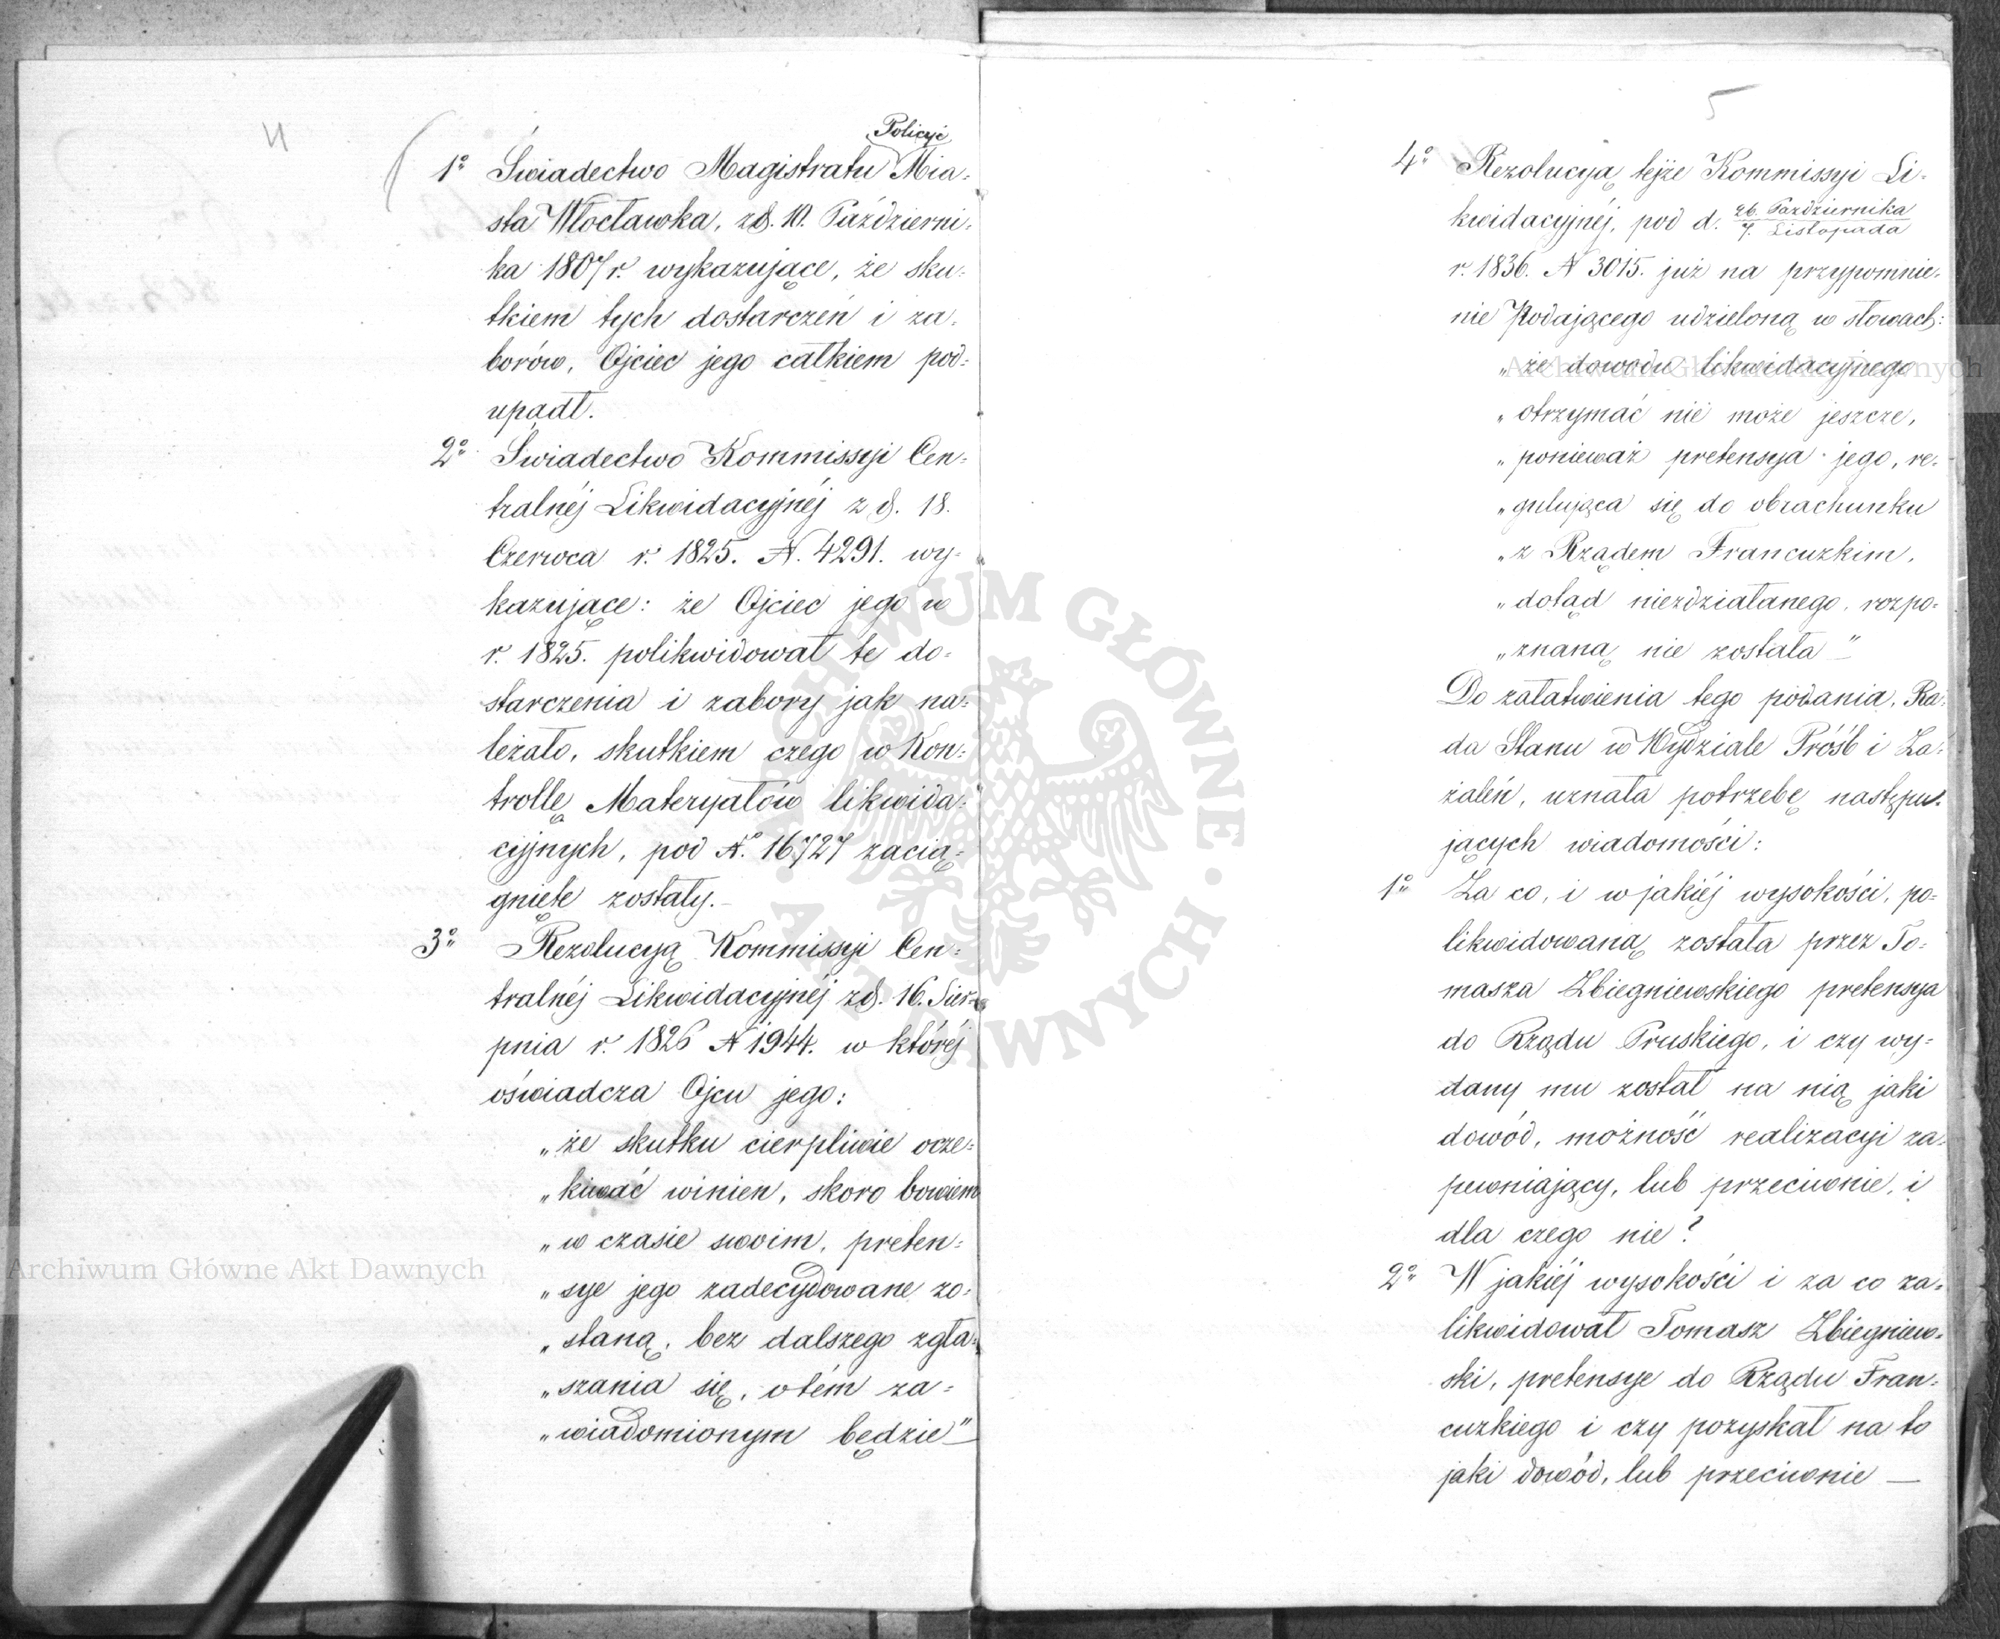 4
Policyi
1º Świadectwo Magistratu Mia-
sta Włocławka, z d. 10. Październi-
ka 1807 r. wykazujące, że sku-
tkiem tych dostarczeń i za-
borów, Ojciec jego całkiem pod-
upadł.
2º Świadectwo Kommissyi Cen-
tralnéj Likwidacyjnéj z d. 18.
Czerwca r. 1825. N. 4291. wy-
kazujące: że Ojciec jego w
r. 1825. polikwidował te do-
starczenia i zabory jak na-
leżało, skutkiem czego w Kon-
trollę Materyałów likwida-
cyjnych, pod Nº 16727 zacią-
gnięte zostały.—
3º Rezolucyą Kommissyi Cen-
tralnéj Likwidacyjnéj z d. 16. Sier-
pnia r. 1826 N 1944. w któréj
oświadcza Ojcu jego:
„że skutku cierpliwie ocze-
„kiwać winien, skoro bowiem
„w czasie swoim, preten-
„sye jego zadecydowane zo-
„staną, bez dalszego zgła-
„szania się, o tém za-
„wiadomionym będzie"—
5
4º Rezolucyą tejże Kommissyi Li-
kwidacyjnéj, pod d. 26. Października
7. Listopada
r. 1836. N 3015. już na przypomnie-
nie Podającego udzieloną w słowach:
„że dowodu likwidacyjnego
„otrzymać nie może jeszcze,
„ponieważ pretensya jego, re-
„gulująca się do obrachunku
„z Rządem Francuzkim,
„dotąd niezdziałanego, rozpo-
„znaną nie została"—
Do załatwienia tego podania, Ra-
da Stanu w Wydziale Próśb i Za-
żaleń, uznała potrzebę następu-
jących wiadomości:
1º Za co, i w jakiéj wysokości, po-
likwidowaną została przez To-
masza Zbiegniewskiego pretensya
do Rządu Pruskiego, i czy wy-
dany mu został na nią jaki
dowód, możność realizacyi za-
pewniający, lub przeciwnie, i
dla czego nie?
2º W jakiéj wysokości i za co za-
likwidował Tomasz Zbiegniew-
ski, pretensye do Rządu Fran-
cuzkiego i czy pozyskał na to
jaki dowód, lub przeciwnie —
Archiwum Główne Akt Dawnych
Archiwum Główne Akt Dawnych
ARCHIWUM GŁÓWNE · AKT DAWNYCH ·